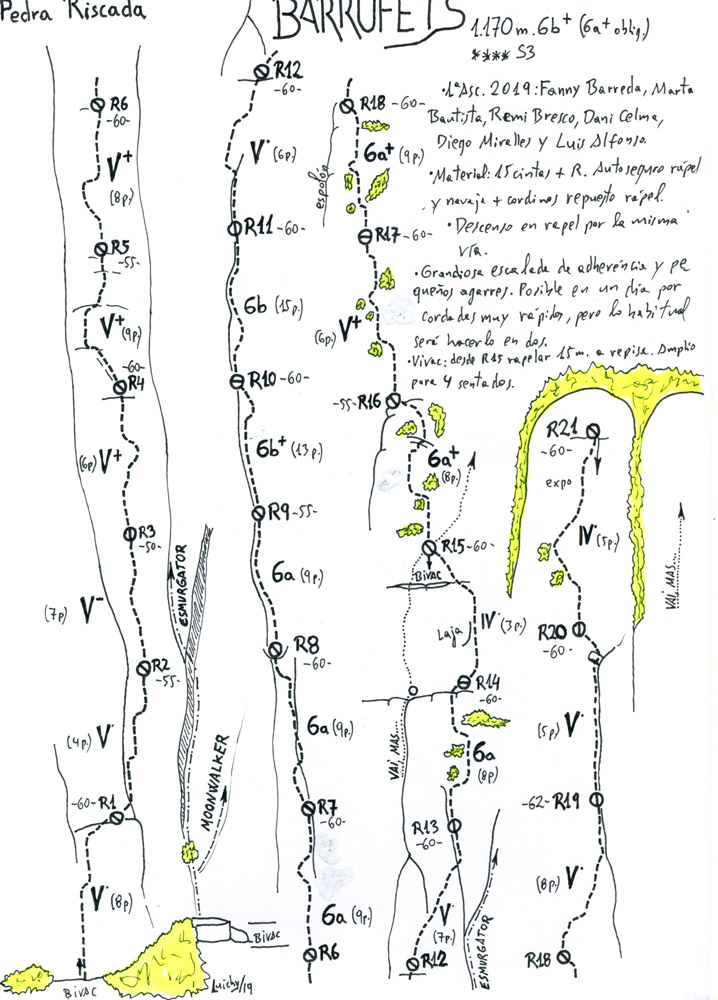 Pedra Riscada
BARRUFETS
1.170 m. 6b+ (6a+ oblig.)
**** S3
•1ª Asc. 2019: Fanny Barreda, Marta
Bautista, Remi Bresco, Dani Celma,
Diego Miralles y Luis Alfonso.
•Material: 15 cintas + R. Autoseguro rápel
y navaja + cordinos repuesto rápel.
•Descenso en rapel por la misma
vía.
•Grandiosa escalada de adherencia y pe
queños agarres. Posible en un día por
cordadas muy rápidas, pero lo habitual
será hacerlo en dos.
•Vivac: desde R15 rapelar 15 m. a repisa. Amplio
para 4 sentados.
R6
-60-
V+
(8p.)
R5
-55-
V+
(9p.)
-60-
R4
(6p) V+
R3
-50-
(7p) V-
R2
-55-
(4p.) V·
-60- R1
V· (8p.)
BIVAC
ESMURGATOR
MOONWALKER
BIVAC
Luichy/19
R12
-60-
V· (6p.)
R11 -60-
6b (15p.)
R10 -60-
6b+ (13p.)
R9 -55-
6a (9p.)
R8
-60-
6a (9p.)
R7
-60-
6a (9p.)
R6
R18 -60-
6a+ (9p.)
espolón
R17 -60-
(6p.) V+
-55- R16
6a+
(8p.)
R15 -60-
BIVAC
Laja
IV· (3p.)
R14
-60-
VAI, MAS...
6a
(8p)
R13
-60-
V·
(7p.)
R12
ESMURGATOR
R21
-60-
expo
IV· (5p.)
VAI, MAS...
R20
-60-
(5p.) V·
-62- R19
(8p.) V·
R18